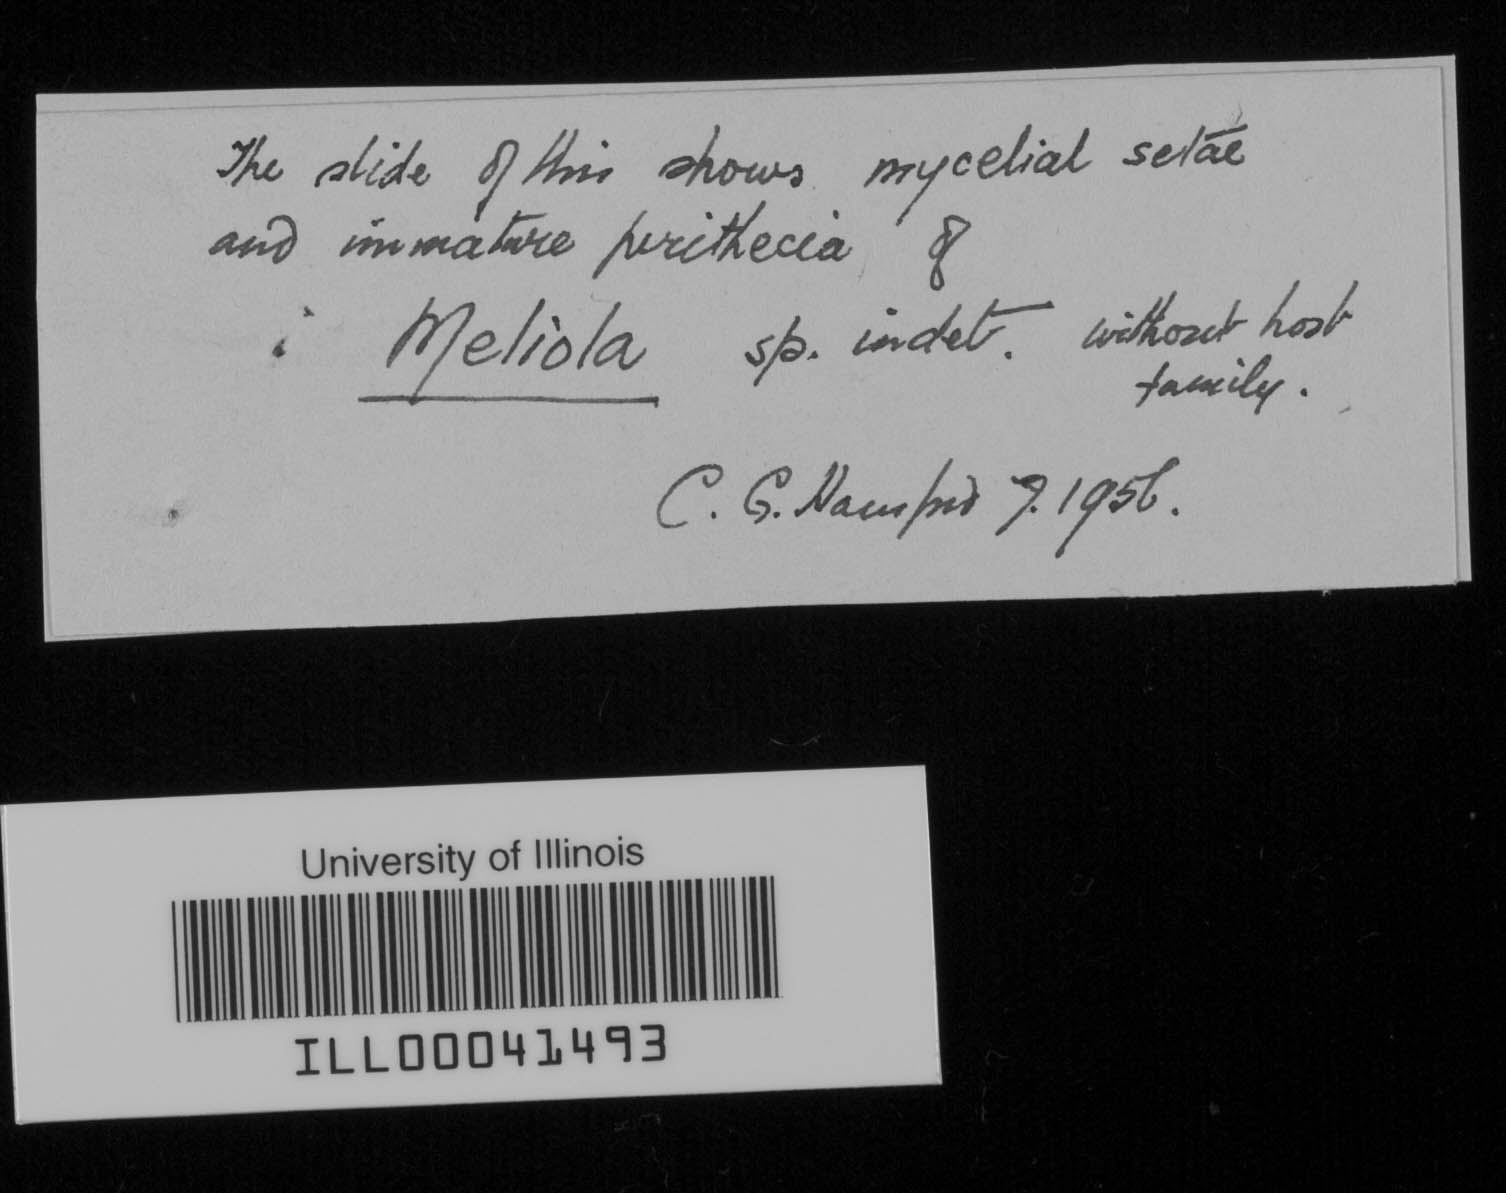 The slide of this shows mycelial setae
and immature perithecia of
Meliola sp. indet. without host
family.
C. G. Hansford 7. 1956.
University of Illinois
ILL00041493